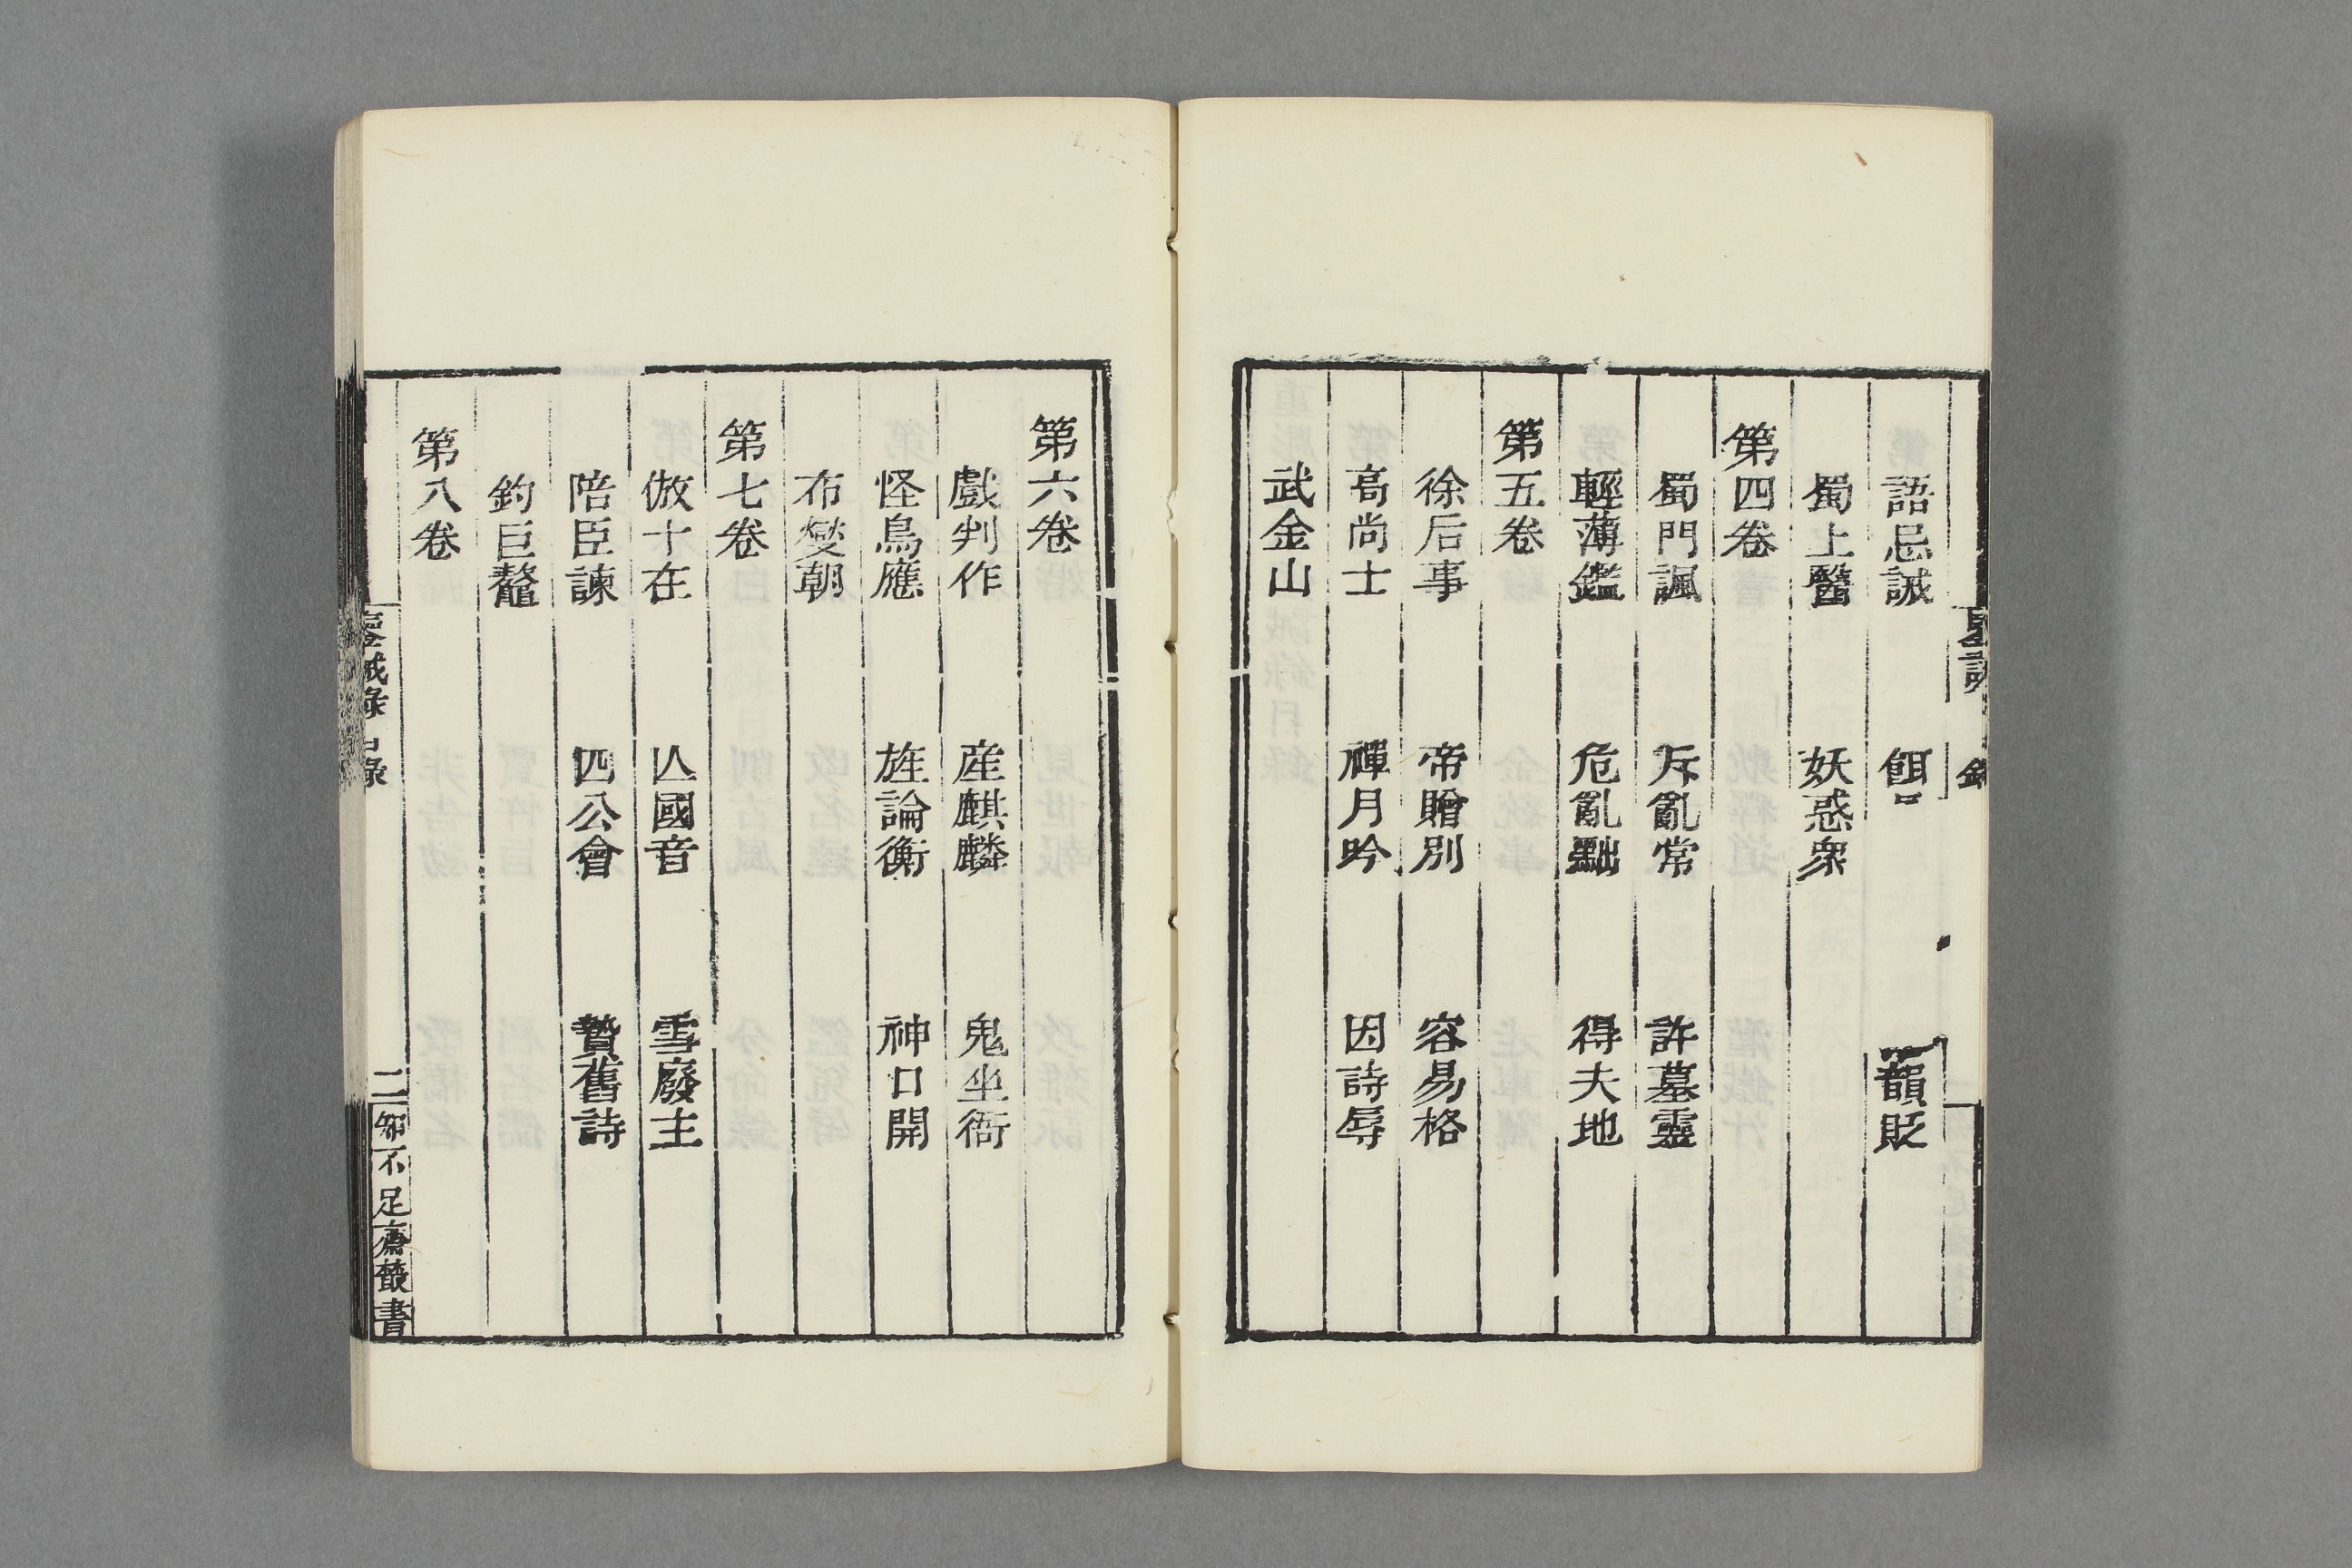 語忌誡 餌 韻貶
蜀上醫 妖惑衆
第四卷
蜀門諷 斥亂常 許墓靈
輕薄鑑 危亂黜 得夫地
第五卷
徐后事 帝贈別 容易格
高尚士 禪月吟 因詩辱
武金山
第六卷
戲判作 産麒麟 鬼坐衙
怪鳥應 旌論衡 神口開
布燮朝
第七卷
倣十在 亾國音 雪廢主
陪臣諫 四公會 贄舊詩
釣巨鼇
第八卷
鑒誡錄 目錄 二 知不足齋叢書